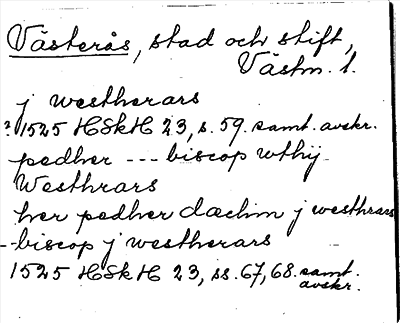 Västerås, stad och stift,
Västm. l.
j westherars
? 1525 HSkH 23, s. 59. samt. avskr.
pedher --- biscop wthij
Westhrars
her pedher dechin j westhrars
--biscop j westherars
1525 HSkH 23, ss. 67, 68. samt. avskr.